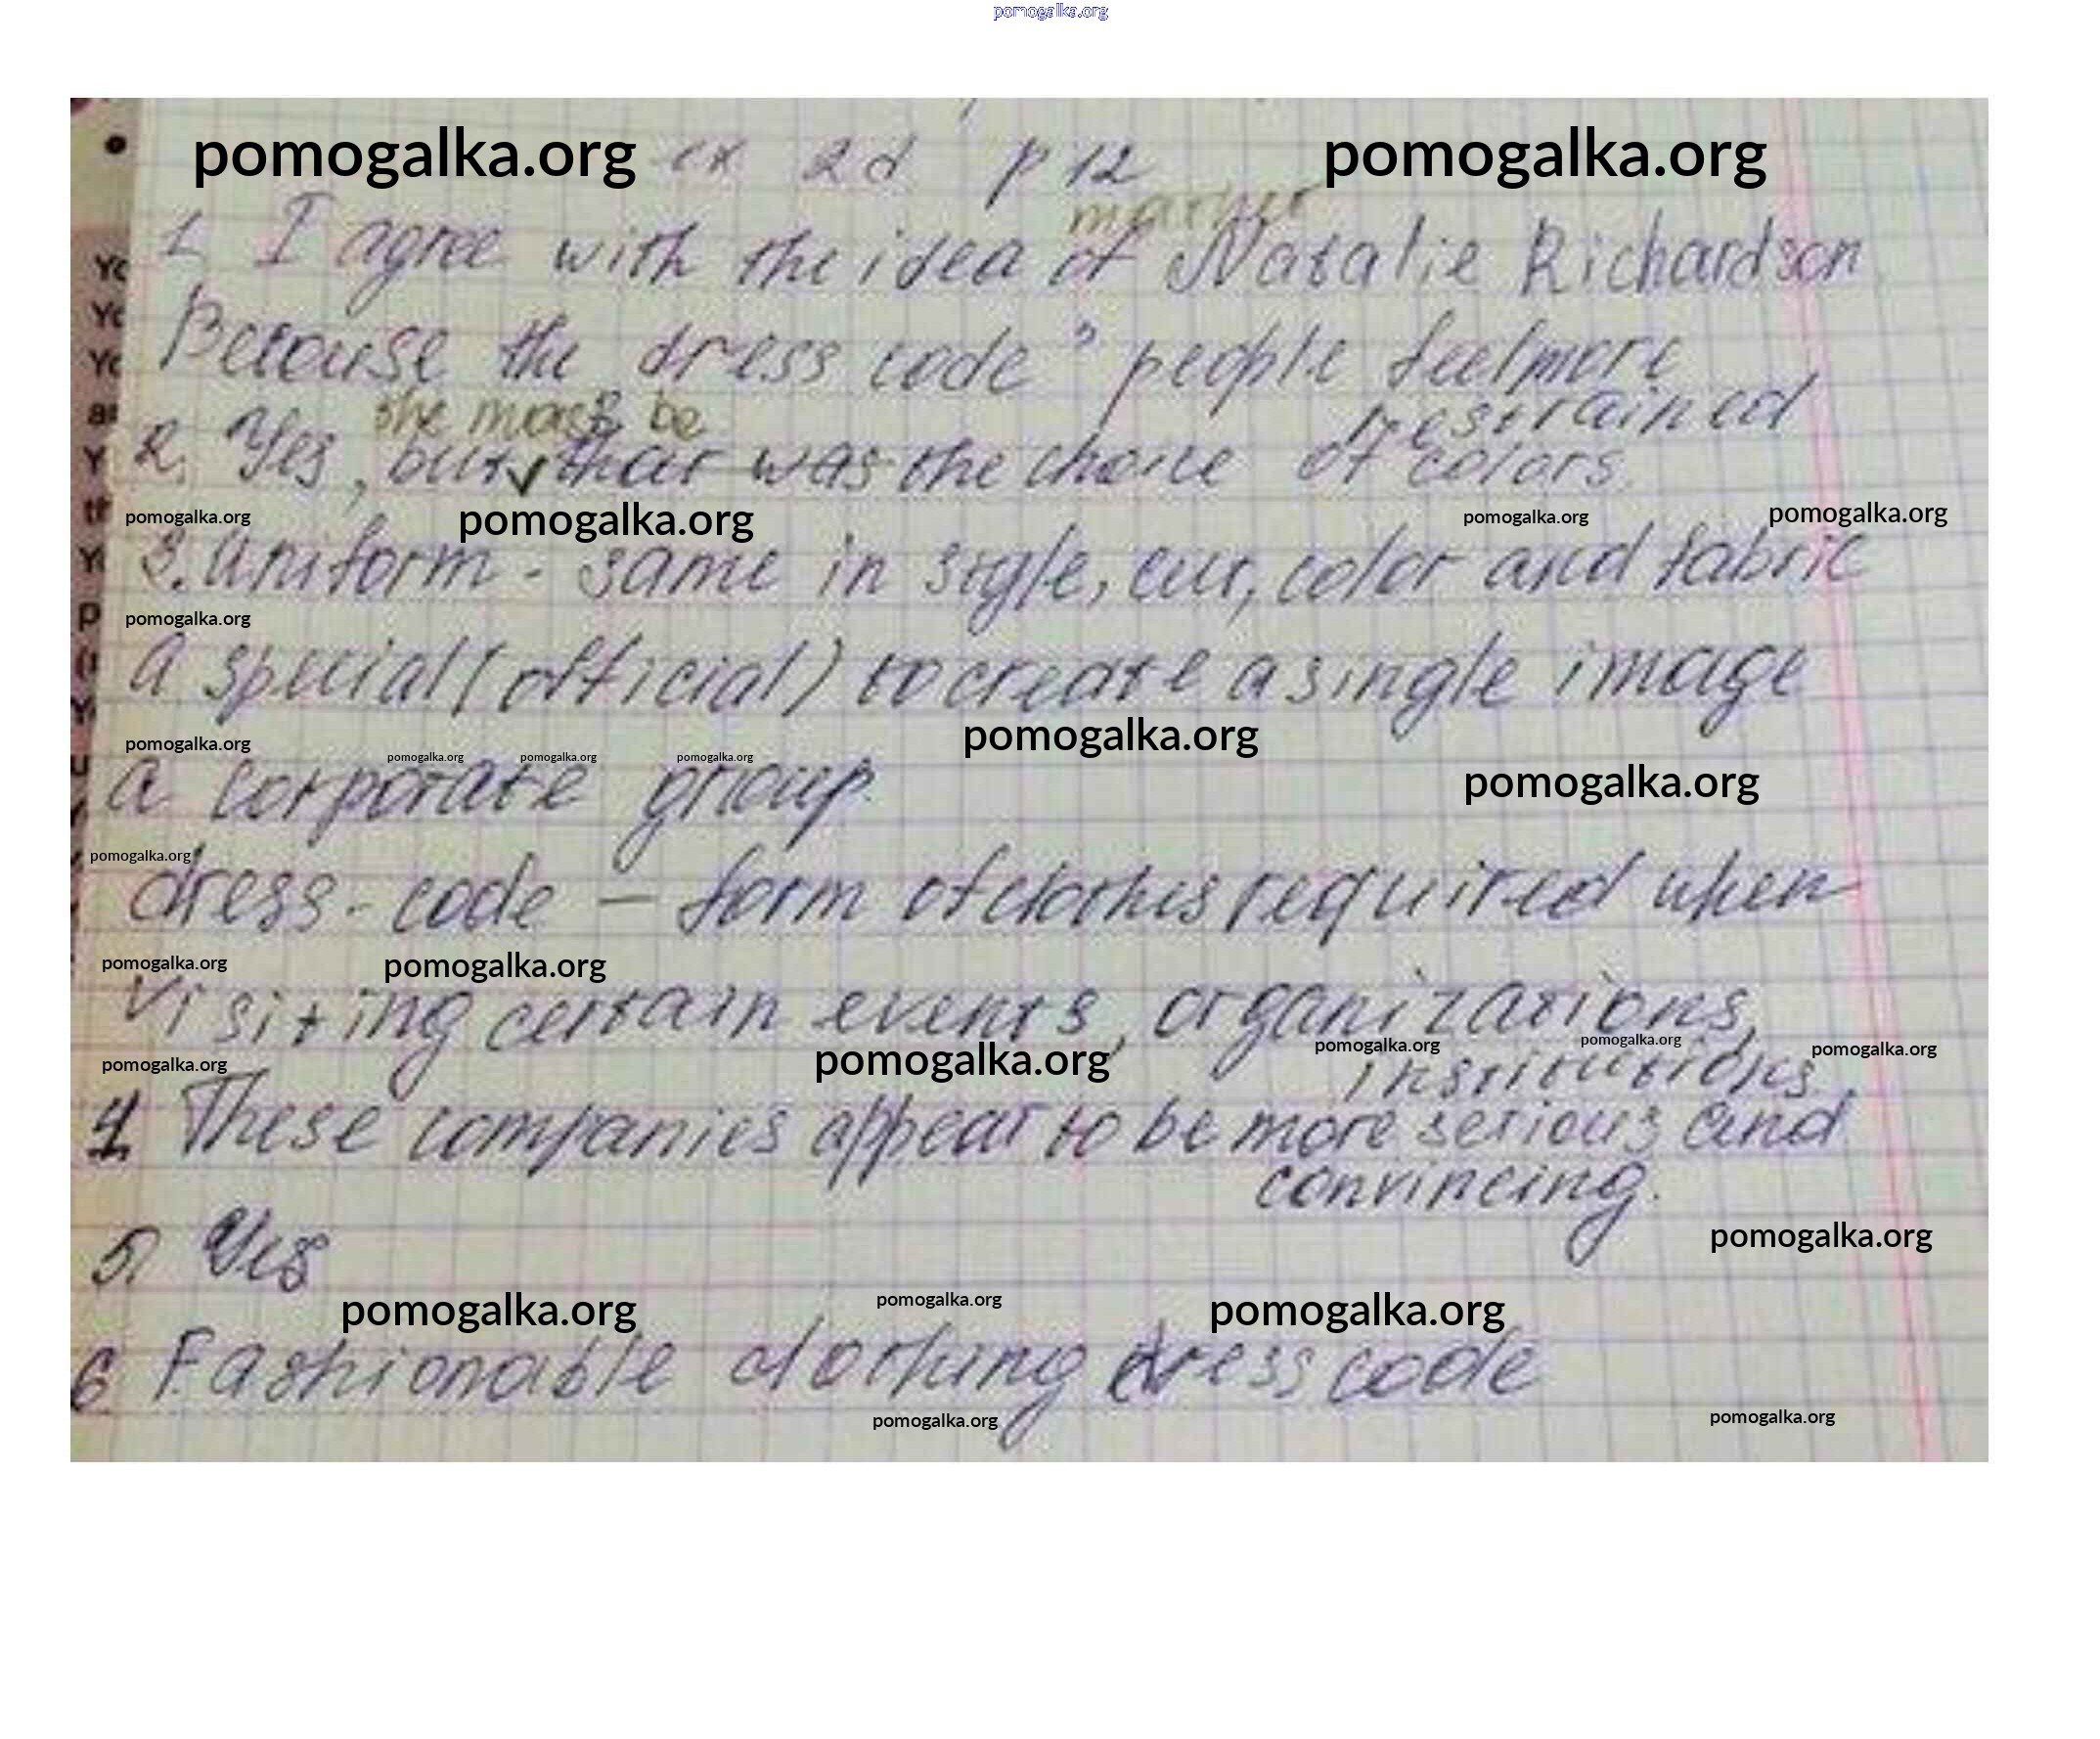 pomogalka.org
pomogalka.org ex 2d p 12 pomogalka.org
1. I agree with the idea of Natalie Richardson
Because the dress code " people feel more
restrained
she must be
2. Yes, but that was the choice of colors.
pomogalka.org pomogalka.org pomogalka.org pomogalka.org
3. Uniform - same in style, cut, color and fabric
pomogalka.org
a special (official) to create a single image
pomogalka.org pomogalka.org
pomogalka.org pomogalka.org pomogalka.org pomogalka.org
a corporate group.
pomogalka.org
dress-code – form of clothes required when
pomogalka.org pomogalka.org
visiting certain events, organizations,
pomogalka.org pomogalka.org pomogalka.org pomogalka.org pomogalka.org
institutions
4. These companies appear to be more serious and
convincing.
5. Yes
pomogalka.org
pomogalka.org pomogalka.org pomogalka.org
6 Fashionable clothing dress code
pomogalka.org pomogalka.org